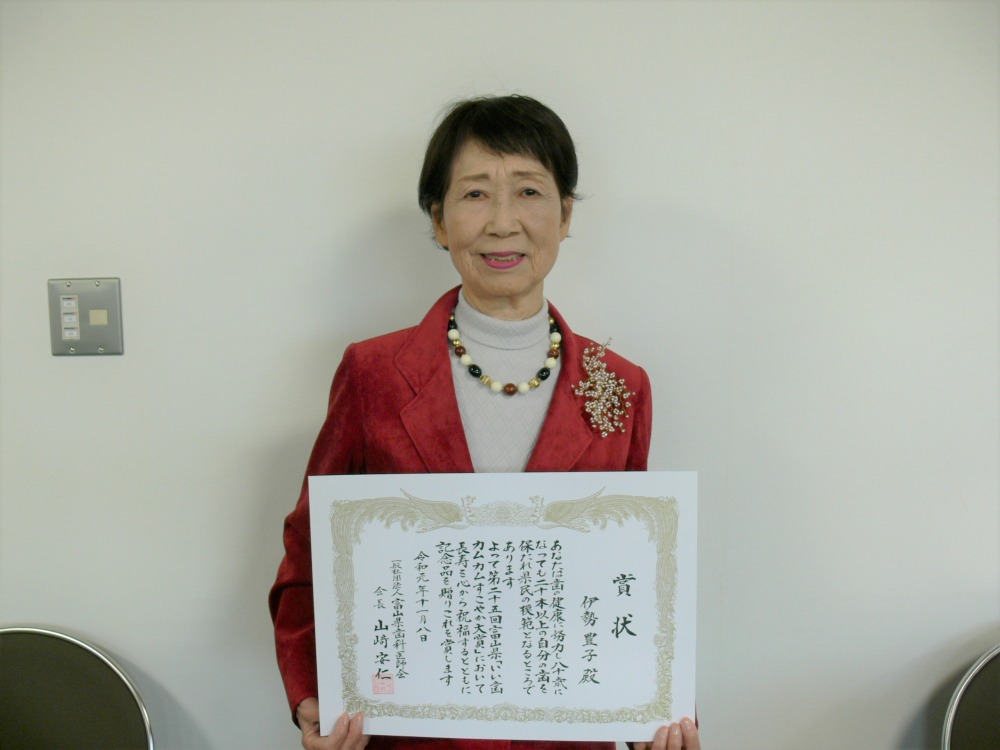 賞状
伊勢豊子殿
あなたは歯の健康に努力し八十歳に
なっても二十本以上の自分の歯を
保たれ県民の模範となるところで
あります
よって第二十五回富山県「いい歯
カムカムすこやか大賞」において
長寿を心から祝福するとともに
記念品を贈りこれを賞します
令和元年十一月八日
一般社団法人富山県歯科医師会
会長 山崎安仁